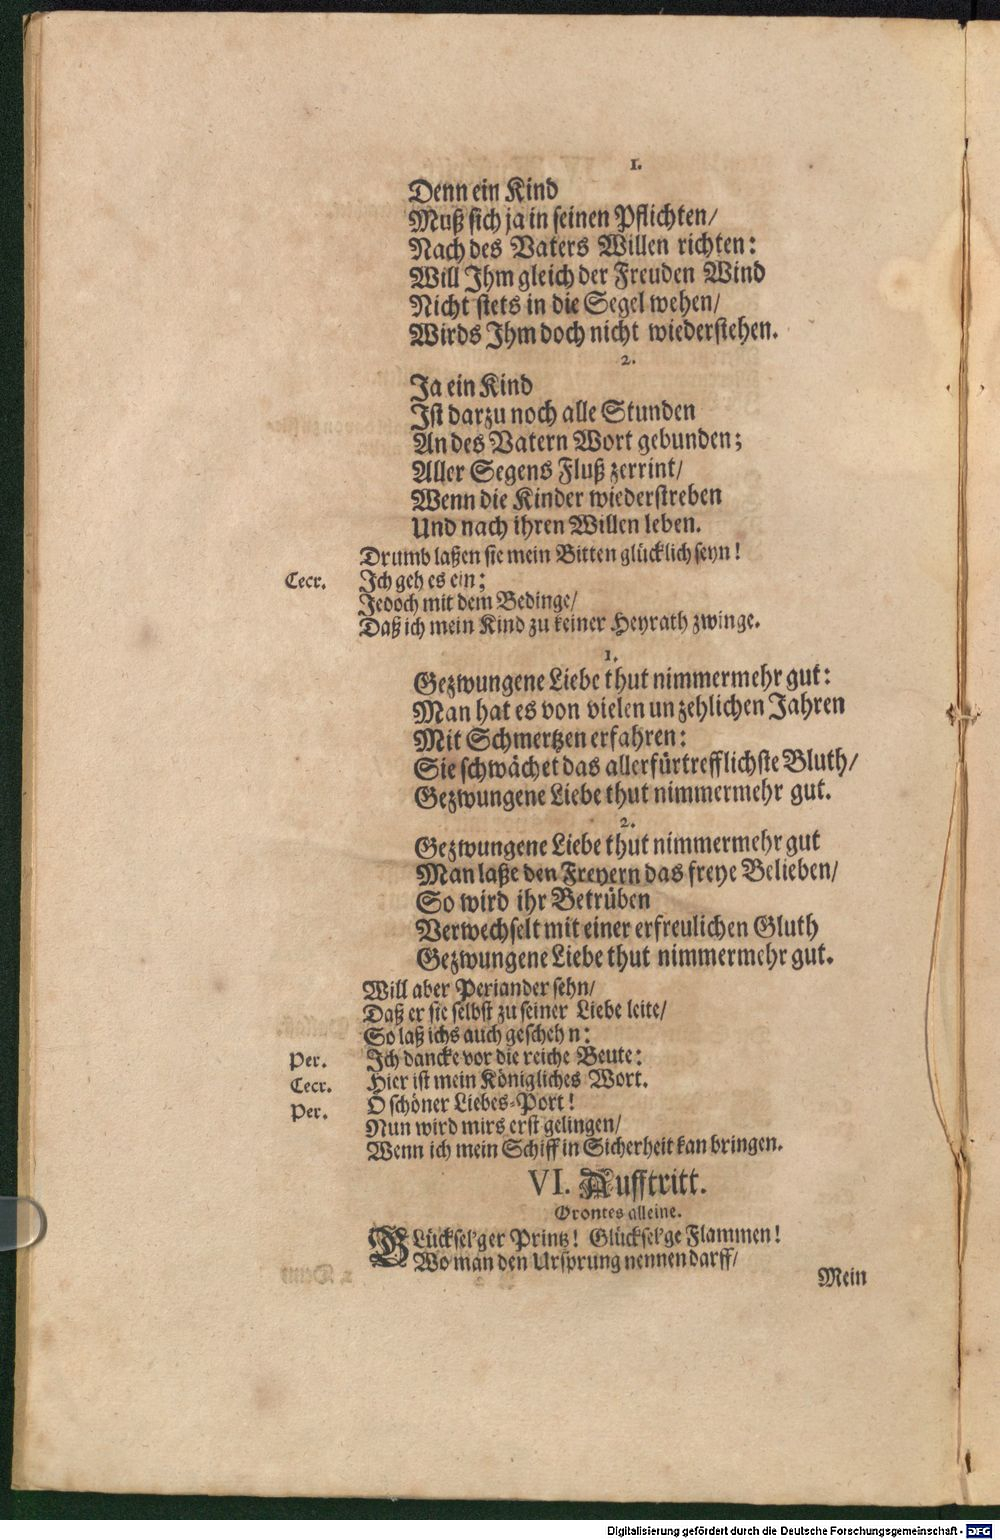 1.
Denn ein Kind
Muß sich ja in seinen Pflichten/
Nach des Vaters Willen richten:
Will Ihm gleich der Freuden Wind
Nicht stets in die Segel wehen/
Wirds Ihm doch nicht wiederstehen.
2.
Ja ein Kind
Ist darzu noch alle Stunden
An des Vatern Wort gebunden;
Aller Segens Fluß zerrint/
Wenn die Kinder wiederstreben
Und nach ihren Willen leben.
Drumb laßen sie mein Bitten glücklich seyn!
Cecr. Ich geh es ein;
Jedoch mit dem Bedinge/
Daß ich mein Kind zu keiner Heyrath zwinge.
1.
Gezwungene Liebe thut nimmermehr gut:
Man hat es von vielen unzehlichen Jahren
Mit Schmertzen erfahren:
Sie schwächet das allerfürtrefflichste Bluth/
Gezwungene Liebe thut nimmermehr gut.
2.
Gezwungene Liebe thut nimmermehr gut
Man laße den Freyern das freye Belieben/
So wird ihr Betrüben
Verwechselt mit einer erfreulichen Gluth
Gezwungene Liebe thut nimmermehr gut.
Will aber Periander sehn/
Daß er sie selbst zu seiner Liebe leite/
So laß ichs auch gescheh n:
Per. Ich dancke vor die reiche Beute:
Cecr. Hier ist mein Königliches Wort.
Per. O schöner Liebes-Port!
Nun wird mirs erst gelingen/
Wenn ich mein Schiff in Sicherheit kan bringen.
VI. Aufftritt.
Orontes alleine.
GLücksel'ger Printz! Glücksel'ge Flammen!
Wo man den Ursprung nennen darff/
Mein
Digitalisierung gefördert durch die Deutsche Forschungsgemeinschaft - DFG